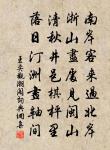 南岸客來過北岸
浙山盡處見閩山
清秋井邑棋枰里
落日汀洲畫軸間
觀瀾閣 詞典網